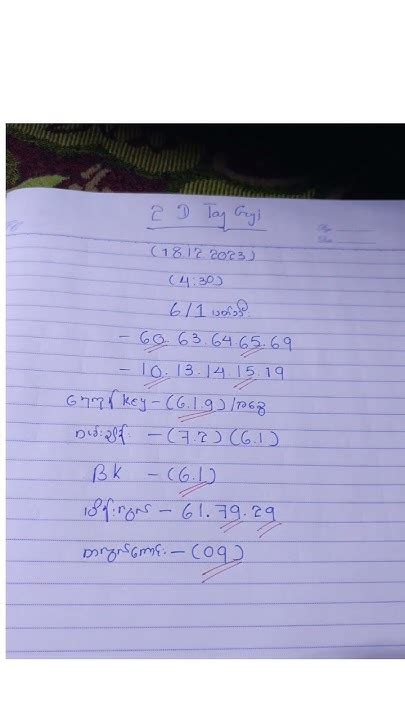 2 D Tay Gyi
(18.12.2023)
(4:30)
6/1 ပတ်သီး
- 60. 63. 64. 65. 69
- 10. 13. 14. 15. 19
key - (6.1.9) /အခွေ
- (7.2) (6.1)
BK - (6.1)
- 61. 79. 29
- (09)